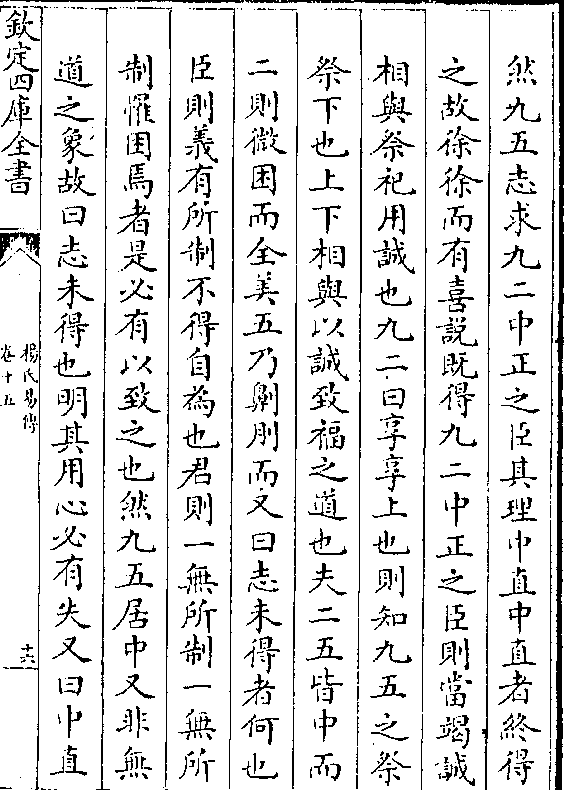 然九五志求九二中正之臣其理中直中直者終得
之故徐徐而有喜説既得九二中正之臣則當竭誠
相與祭祀用誠也九二曰享享上也則知九五之祭
祭下也上下相與以誠致福之道也夫二五皆中而
二則微困而全美五乃劓刖而又曰志未得者何也
臣則義有所制不得自為也君則一無所制一無所
制惟困焉者是必有以致之也然九五居中又非無
道之象故曰志未得也明其用心必有失又曰中直
欽定四庫全書
楊氏易傳
卷十五
十六